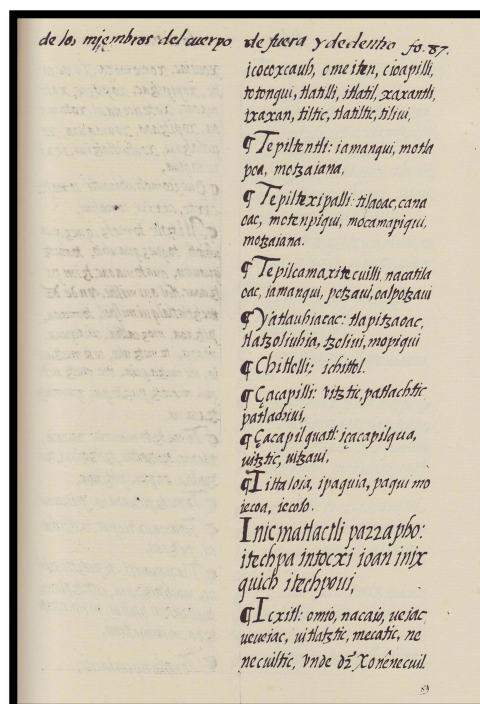 de los miembros del cuerpo de fuera y de dentro fo. 87.
icocoxcauh, omeiten, cioapilli,
totonqui, tlatilli, itlatil, xaxantli,
ixaxan, tiltic, tlatiltic, tiliui,
¶ Tepiltentli: iamanqui, motla
poa, motzaiana,
¶ Tepiltexipalli: tilaoac, cana
oac, motenpiqui, mocamapiqui,
motzaiana.
¶ Tepilcamaxitecuilli, nacatila
oac, iamanqui, potzaui, oalpotzaui
¶ Yatlauhiacac: tlapitzaoac,
tlatzoliuhia, tzoliui, mopiqui
¶ Chittelli: ichittel.
¶ Çacapilli: vitztic, patlachtic,
patlachiui,
¶ Çacapilquatl: içacapilqua,
uitztic, uitzaui,
¶ Iittaloia, ipaquia, paqui mo
iecoa, iecolo.
Inic matlactli parrapho:
itechpa intocxi ioan inix
quich itechpoui,
¶ Icxitl: omio, nacaio, ueiac
ueueiac, uitlatztic, mecatic, ne
necuiltic, vnde dz̃ Xonênecuil.